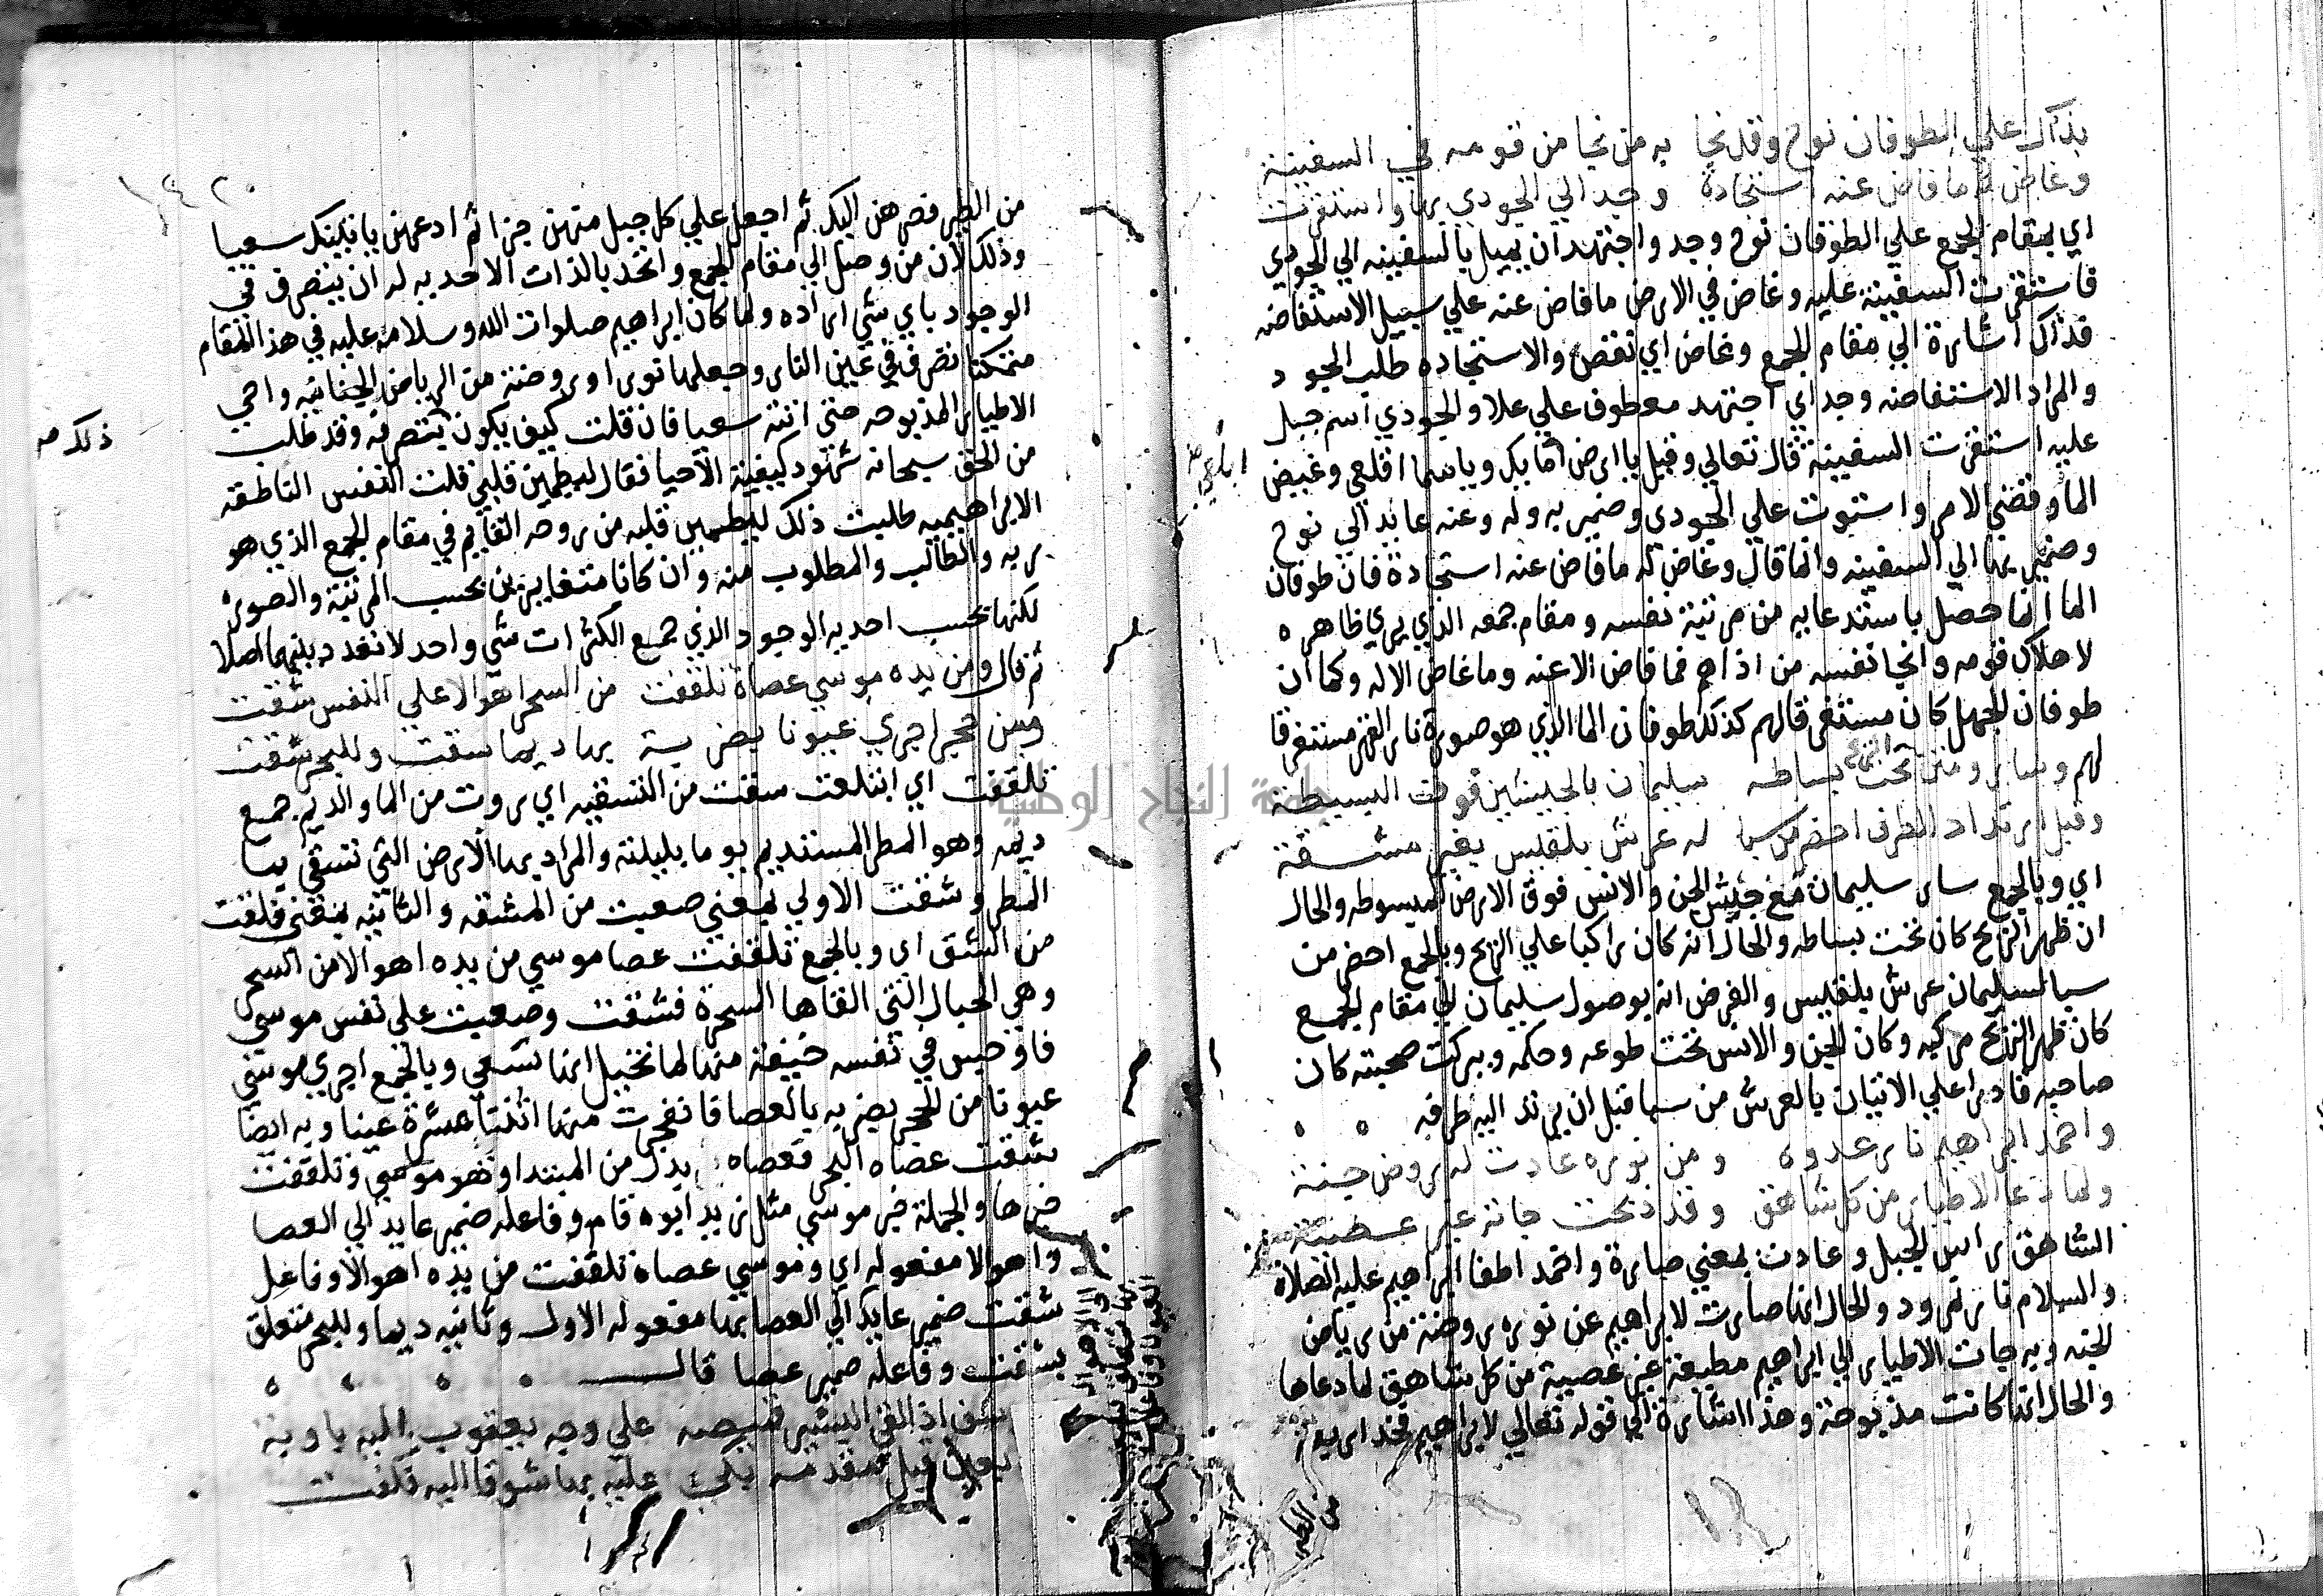 بذاك علي الطوفان نوح وقد نجا به من نجا من قومه في السفينة
وغاض له ما فاض عنه استجادة وجد الي الجودي بها واستقرت
اي بمقام الجمع علي الطوفان نوح وجد واجتهد ان يميل بالسفينه الي الجودي
فاستقرت السفينة عليه وغاض في الارض ما فاض عنه علي سبيل الاستفاضه
فذاك اشارة الي مقام الجمع وغاض اي نقص والاستجاده طلب الجود
والمراد الاستفاضه وجد اي اجتهد معطوف علي علا والجودي اسم جبل
عليه استقرت السفينة قال تعالي وقيل يا ارض ابلعي مايك وياسما اقلعي وغيض
الما وقضي الامر واستوت علي الجودي وضمير به وله وعنه عايد الي نوح
وضمير بها الي السفينه وانما قال وغاض له ما فاض عنه استجادة فان طوفان
الما انما حصل باستدعايه من مرتبة نفسه ومقام جمعه الذي يري ظاهره
لاهلاك قومه وانجا نفسه من اذاهم فما فاض الا عنه وما غاض الا له وكما ان
طوفان الجهل كان مستغرقا لهم كذلك طوفان الما الذي هو صورة نار القهر مستغرقا
لهم وسار ومتن الريح تحت بساطه سليمان بالجيشين فوق البسيطة
وقبل ارتداد الطرف احضر من سبا له عرش بلقيس بغير مشقة
اي وبالجمع سار سليمان مع جيش الجن والانس فوق الارض المبسوطه والحال
ان ظهر الريح كان تحت بساطه والحال انه كان راكبا علي الريح وبالجمع احضر من
سبا لسليمان عرش بلقيس والغرض انه بوصول سليمان الي مقام الجمع
كان ظهر الريح مركبه وكان الجن والانس تحت طوعه وحكمه وببركت صحبته كان
صاحبه قادرا علي الاتيان بالعرش من سبا قبل ان يرتد اليه طرفه
واخمد ابراهيم نار عدوه ومن نوره عادت له روض جنة
ولما دعا الاطيار من كل شاهق وقد ذبحت جاته غير عصية
الشاهق راس الجبل وعادت بمعني صارة واخمد اطفا ابراهيم عليه الصلاة
والسلام نار نمرود والحال انها صارت لابراهيم عن نوره روضة من رياض
الجنه وبه جات الاطيار الي ابراهيم مطيعة غير عصية من كل شاهق لما دعاها
والحال انها كانت مذبوحة وهذا اشارة الي قوله تعالي لابراهيم فخذ اربعة
من الطير
من الطير فصرهن اليك ثم اجعل علي كل جبل منهن جزا ثم ادعهن ياتينك سعيا
وذلك لان من وصل الي مقام الجمع واتحد بالذات الاحديه له ان يتصرف في
الوجود باي شي اراده ولما كان ابراهيم صلوات الله وسلامه عليه في هذا المقام
متمكنا تصرف في عين النار وجعلها نورا وروضة من الرياض الجنانيه واحيي
الاطيار المذبوحه حتي اتته سعيا فان قلت كيف يكون يتصرفه وقد طلب ذلك
من الحق سبحانه شهود كيفية الاحيا فقال ليطمين قلبي قلت النفس الناطقة
الابراهيميه طلبت ذلك ليطمين قلبه من روحه القايم في مقام الجمع الذي هو
ربه والطالب والمطلوب منه وان كانا متغايرين بحسب المرتبة والصورة
لكنها بحسب احديه الوجود الذي جمع الكثرات شي واحد لا تعدد بينهما اصلا
ثم قال ومن يده موسي عصاه تلقفت من السحر اهوالا علي النفس شقت
ومن حجر اجري عيونا بضربة بها ديما سقت وللبحر شقت
تلقفت اي ابتلعت سقت من التسقيه اي روت من الما والديم جمع
ديمه وهو المطر المستديم يوما بليلته والمراد بها الارض التي تسقي بما
المطر وشقت الاولي بمعني صعبت من المشقه والثانيه بمعني فلقت
من الشق اي وبالجمع تلقفت عصا موسي من يده اهوالا من السحر
وهي الحبال التي القاها السحرة فشقت وصعبت علي نفس موسي
فاوجس في نفسه خيفة منها لما تخيل انها تسعي وبالجمع اجري موسي
عيونا من الحجر بضربه بالعصا فانفجرت منها اثنتا عشرة عينا وبه ايضا
شقت عصاه البحر فعصاه بدل من المبتدا وهو موسي وتلقفت
خبرها والجملة خبر موسي مثل زيد ابوه قام وفاعله ضمير عايد الي العصا
واهوالا مفعوله اي وموسي عصاه تلقفت من يده اهوالا وفاعل
شقت ضمير عايد الي العصا بها مفعوله الاول وثانيه ديما وللبحر متعلق
بشقت وفاعله ضمير عصا قال
اذ القي البشير قميصه علي وجه يعقوب اليه باوبة
قبل مقدمه بكي عليه بها شوقا اليه فكفت